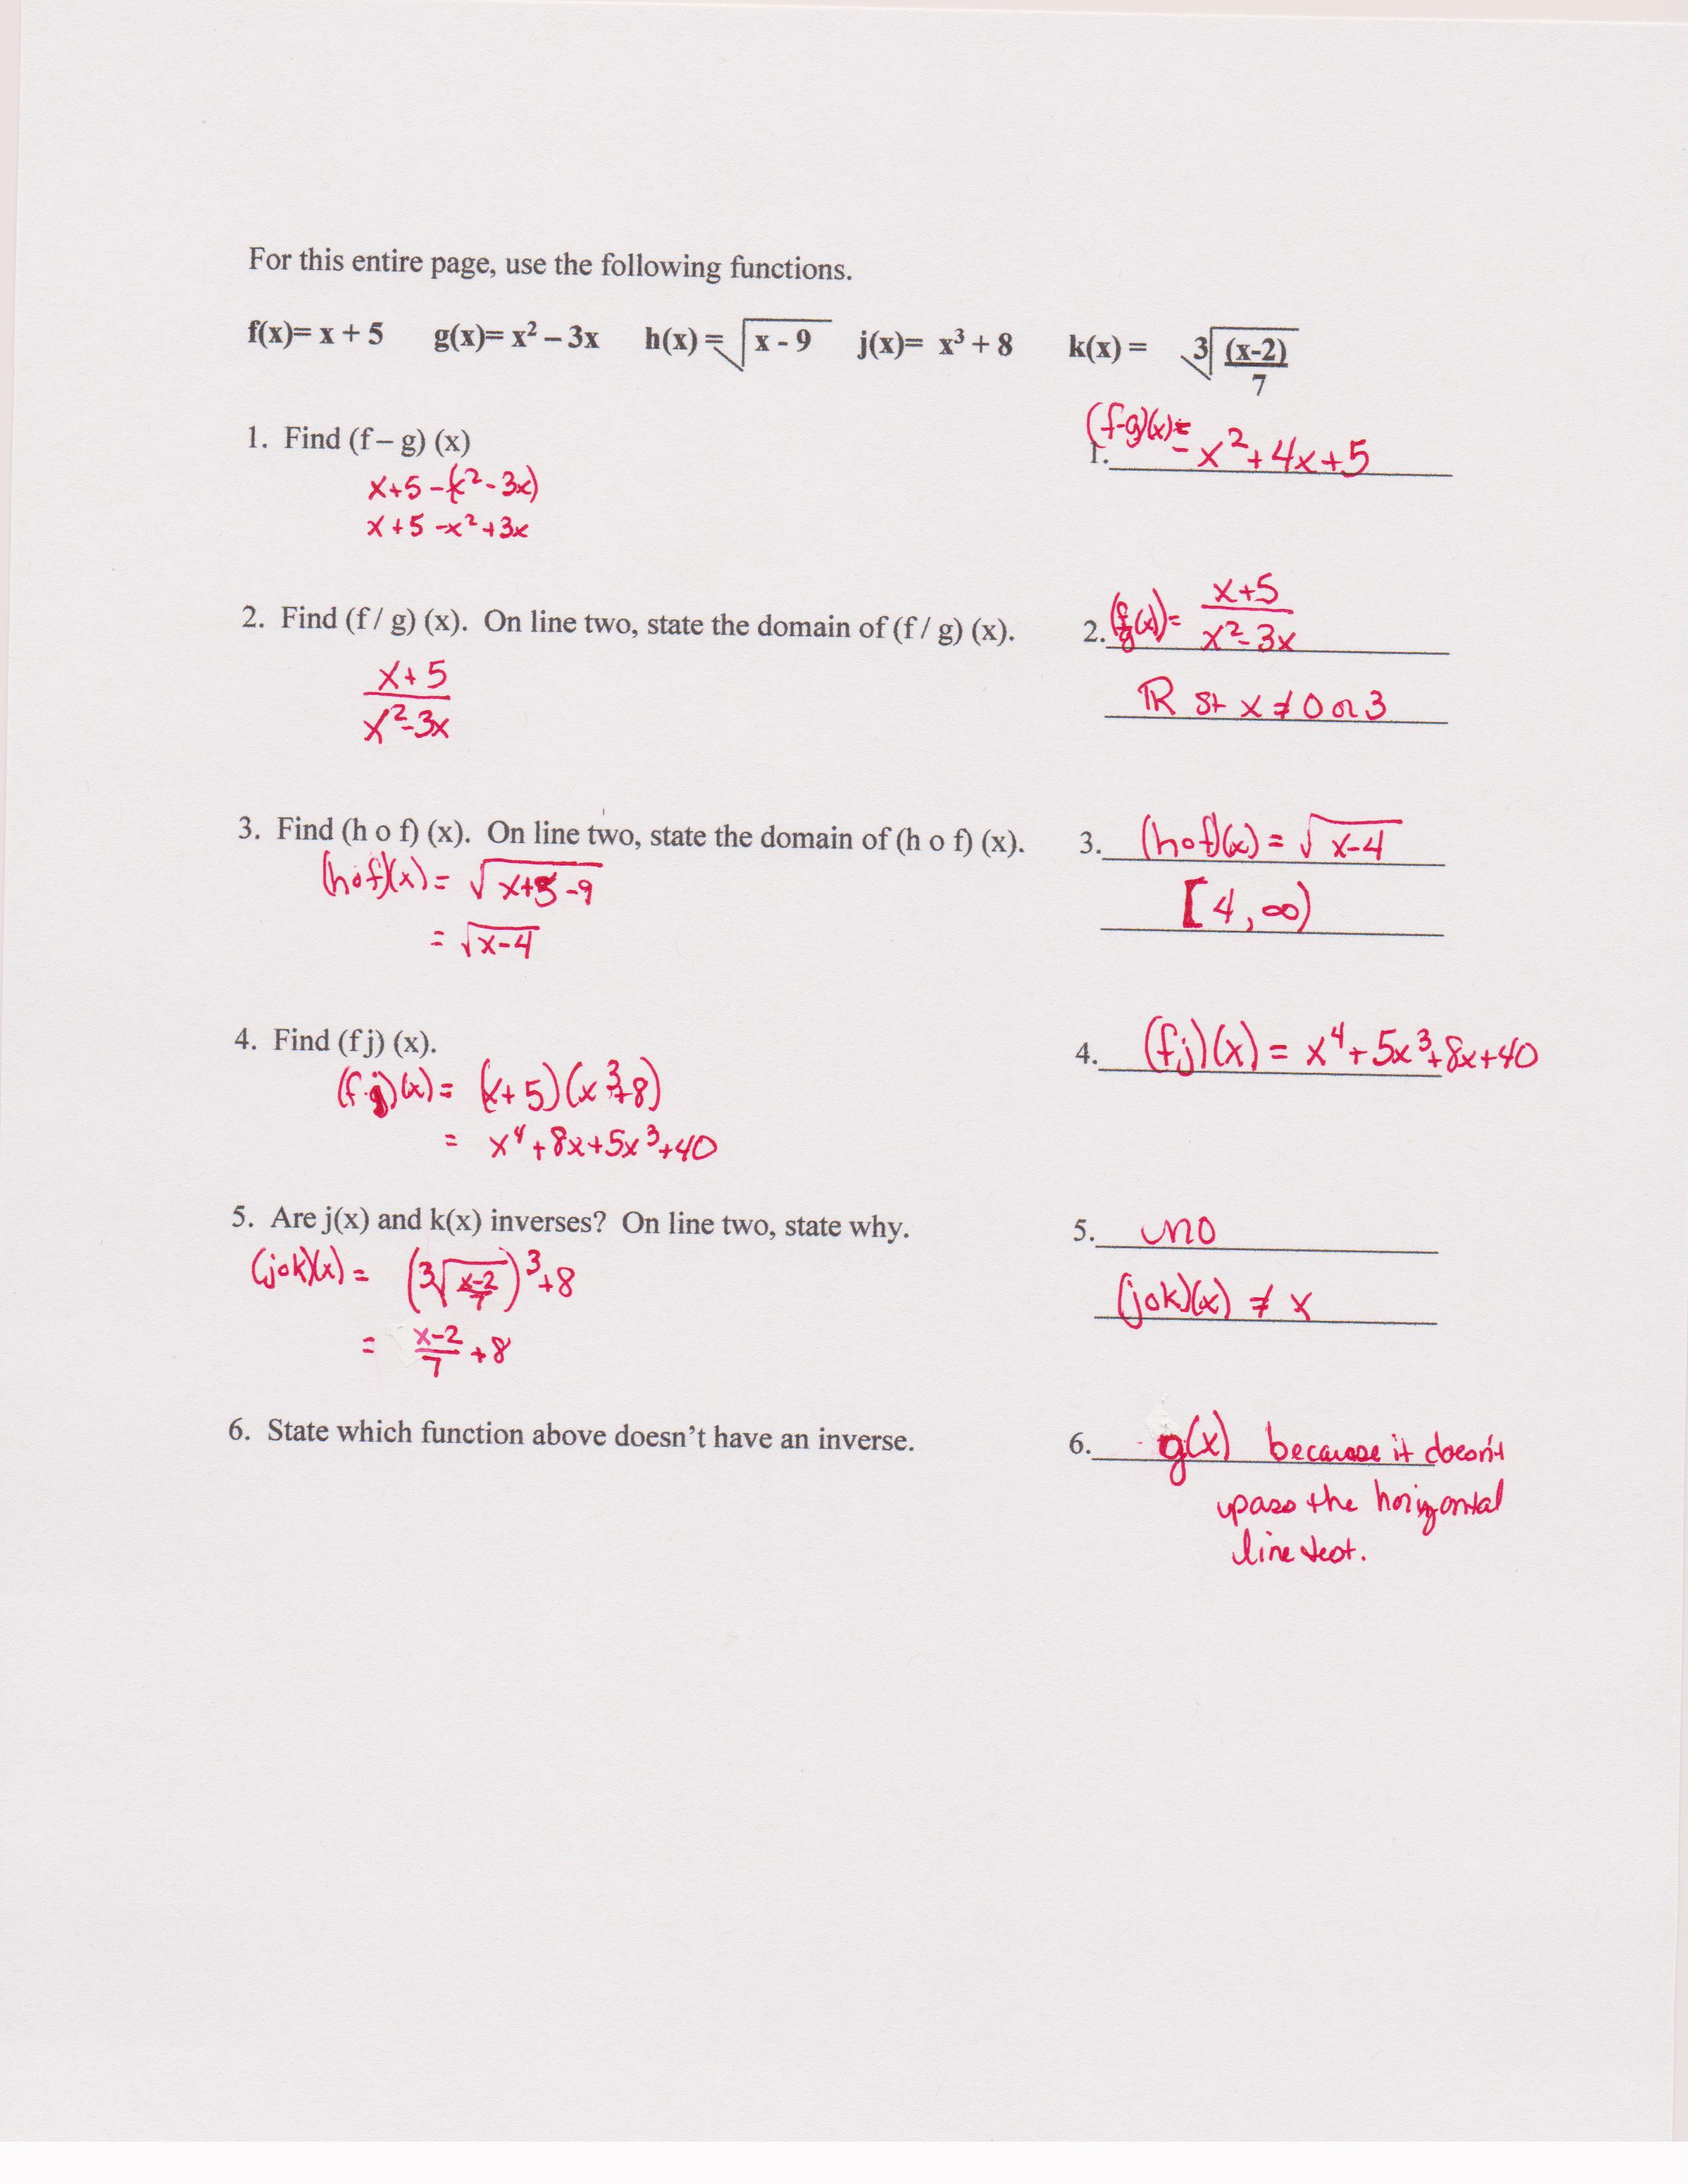 For this entire page, use the following functions.
f(x)= x + 5 g(x)= x² – 3x h(x) = √(x - 9) j(x)= x³ + 8 k(x) = ³√((x-2)/7)
1. Find (f – g) (x)
(f-g)(x)=
1. -x²+4x+5
x+5-(x²-3x)
x+5-x²+3x
2. Find (f / g) (x). On line two, state the domain of (f / g) (x).
2. (f/g)(x)= (x+5)/(x²-3x)
(x+5)/(x²-3x)
ℝ st x ≠ 0 or 3
3. Find (h o f) (x). On line two, state the domain of (h o f) (x).
3. (h∘f)(x) = √(x-4)
(h∘f)(x) = √(x+5-9)
= √(x-4)
[4, ∞)
4. Find (f j) (x).
4. (fj)(x) = x⁴+5x³+8x+40
(f·j)(x) = (x+5)(x³+8)
= x⁴+8x+5x³+40
5. Are j(x) and k(x) inverses? On line two, state why.
5. no
(j∘k)(x) = (³√((x-2)/7))³+8
(j∘k)(x) ≠ x
= (x-2)/7 +8
6. State which function above doesn't have an inverse.
6. g(x) because it doesn't
pass the horizontal
line test.